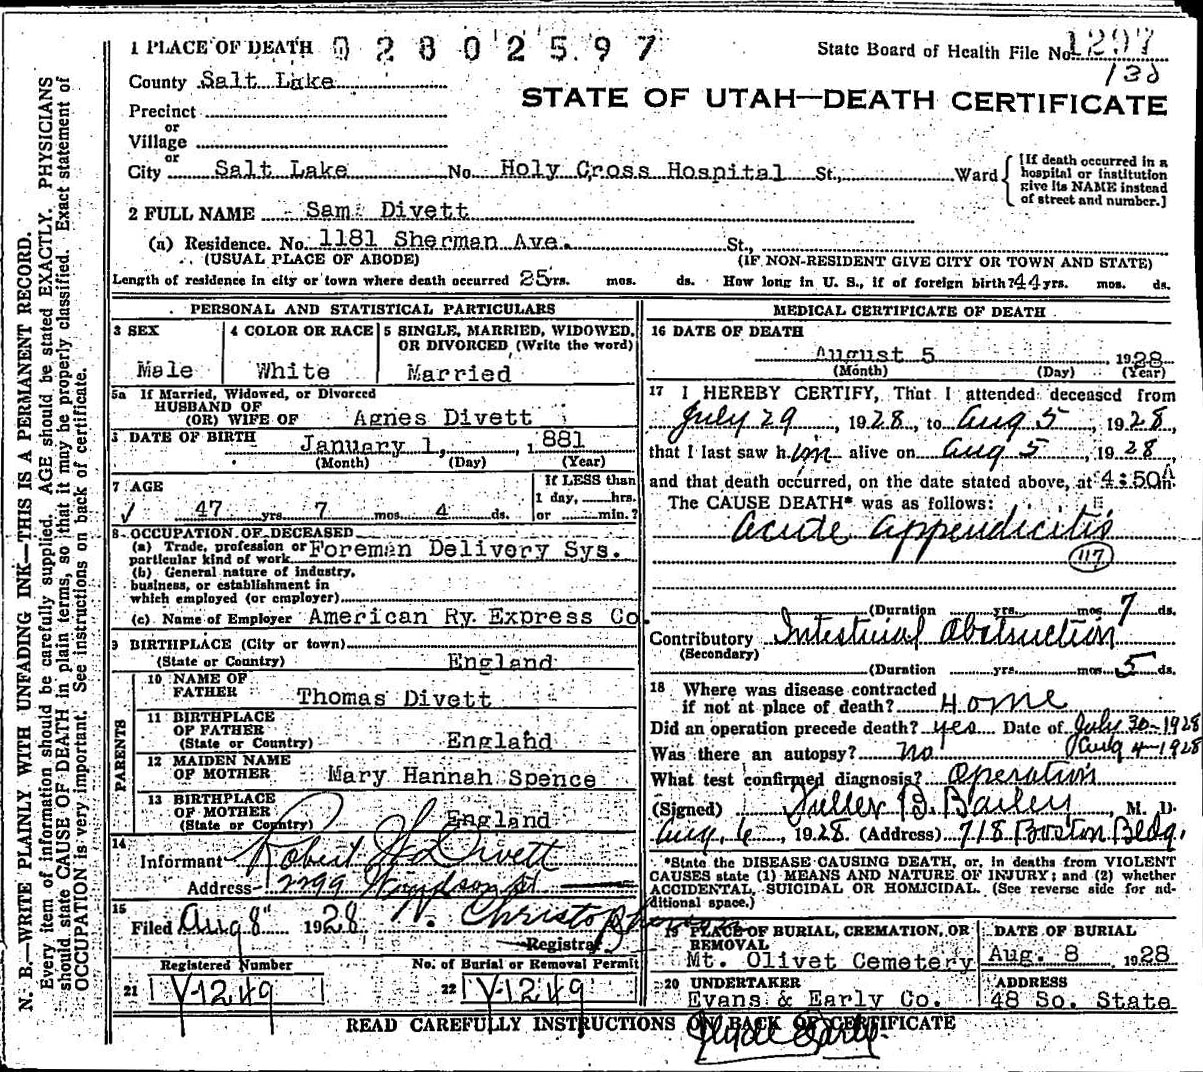 1 PLACE OF DEATH 0 2 8 0 2 5 9 7
State Board of Health File No. 1297
County Salt Lake
STATE OF UTAH—DEATH CERTIFICATE
Precinct
or
Village
or
City Salt Lake No. Holy Cross Hospital St., Ward
[If death occurred in a
hospital or institution
give its NAME instead
of street and number.]
2 FULL NAME Sam Divett
(a) Residence. No. 1181 Sherman Ave. St.,
(USUAL PLACE OF ABODE) (IF NON-RESIDENT GIVE CITY OR TOWN AND STATE)
Length of residence in city or town where death occurred 25 yrs. mos. ds. How long in U. S., if of foreign birth? 44 yrs. mos. ds.
PERSONAL AND STATISTICAL PARTICULARS
3 SEX
Male
4 COLOR OR RACE
White
5 SINGLE, MARRIED, WIDOWED,
OR DIVORCED (Write the word)
Married
5a If Married, Widowed, or Divorced
HUSBAND OF
(OR) WIFE OF Agnes Divett
DATE OF BIRTH January 1, 1881
(Month) (Day) (Year)
7 AGE
47 yrs. 7 mos. 4 ds.
If LESS than
1 day, hrs.
or min.?
8 OCCUPATION OF DECEASED
(a) Trade, profession or
particular kind of work Foreman Delivery Sys.
(b) General nature of industry,
business, or establishment in
which employed (or employer)
(c) Name of Employer American Ry. Express Co.
9 BIRTHPLACE (City or town)
(State or Country) England
PARENTS
10 NAME OF
FATHER Thomas Divett
11 BIRTHPLACE
OF FATHER
(State or Country) England
12 MAIDEN NAME
OF MOTHER Mary Hannah Spence
13 BIRTHPLACE
OF MOTHER
(State or Country) England
14
Informant Robert W Divett
Address 2299 Windsor St
15
Filed Aug 8 1928
Registrar
Registered Number
21 Y-1249
No. of Burial or Removal Permit
22 Y-1249
MEDICAL CERTIFICATE OF DEATH
16 DATE OF DEATH
August 5 1928
(Month) (Day) (Year)
17 I HEREBY CERTIFY, That I attended deceased from
July 29, 1928, to Aug 5, 1928,
that I last saw him alive on Aug 5, 1928
and that death occurred, on the date stated above, at 4:50 A m.
The CAUSE DEATH* was as follows:
Acute appendicitis
117
(Duration yrs. mos. 7 ds.
Contributory Intestinal Obstruction
(Secondary)
(Duration yrs. mos. 5 ds.
18 Where was disease contracted
if not at place of death? Home
Did an operation precede death? yes Date of July 30-1928
Aug 4-1928
Was there an autopsy? no
What test confirmed diagnosis? Operation
(Signed) Fuller B. Bailey, M. D.
Aug. 6 1928. (Address) 718 Boston Bldg.
*State the DISEASE CAUSING DEATH, or, in deaths from VIOLENT
CAUSES state (1) MEANS AND NATURE OF INJURY; and (2) whether
ACCIDENTAL, SUICIDAL OR HOMICIDAL. (See reverse side for ad-
ditional space.)
19 PLACE OF BURIAL, CREMATION, OR
REMOVAL
Mt. Olivet Cemetery
DATE OF BURIAL
Aug. 8 1928
20 UNDERTAKER
Evans & Early Co.
ADDRESS
48 So. State
READ CAREFULLY INSTRUCTIONS ON BACK OF CERTIFICATE
N. B.—WRITE PLAINLY WITH UNFADING INK—THIS IS A PERMANENT RECORD.
Every item of information should be carefully supplied. AGE should be stated EXACTLY. PHYSICIANS
should state CAUSE OF DEATH in plain terms, so that it may be properly classified. Exact statement of
OCCUPATION is very important. See instructions on back of certificate.